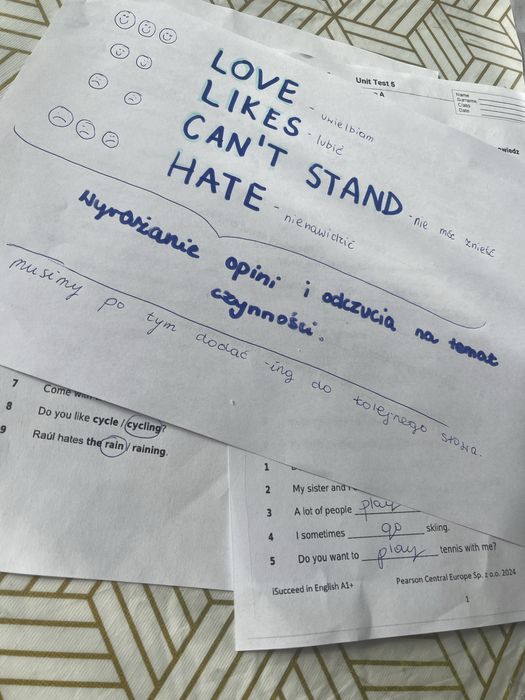 LOVE - uwielbiam
LIKES - lubić
CAN'T STAND - nie móc znieść
HATE - nienawidzić
Wyrażanie opini i odczucia na temat
czynności.
musimy po tym dodać -ing do kolejnego słowa.
Unit Test 5
A
Name
Surname
Class
Date
7 Come with
8 Do you like cycle / cycling?
9 Raúl hates the rain / raining.
1
2 My sister and
3 A lot of people play
4 I sometimes go skiing.
5 Do you want to play tennis with me?
iSucceed in English A1+
Pearson Central Europe Sp. z o.o. 2024
1